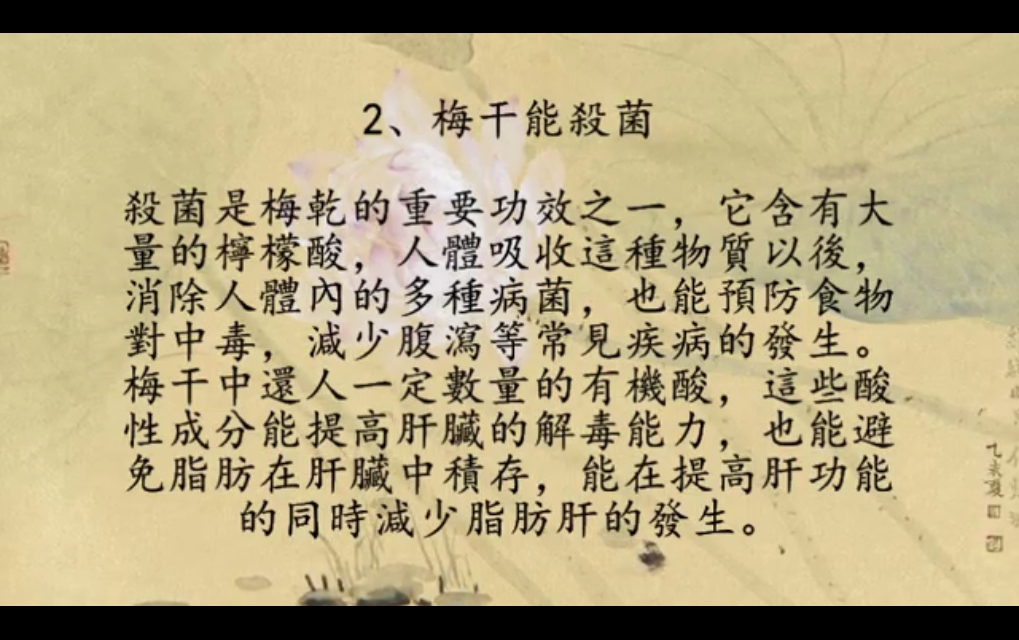 2、梅干能殺菌
殺菌是梅乾的重要功效之一，它含有大
量的檸檬酸，人體吸收這種物質以後，
消除人體內的多種病菌，也能預防食物
對中毒，減少腹瀉等常見疾病的發生。
梅干中還人一定數量的有機酸，這些酸
性成分能提高肝臟的解毒能力，也能避
免脂肪在肝臟中積存，能在提高肝功能
的同時減少脂肪肝的發生。